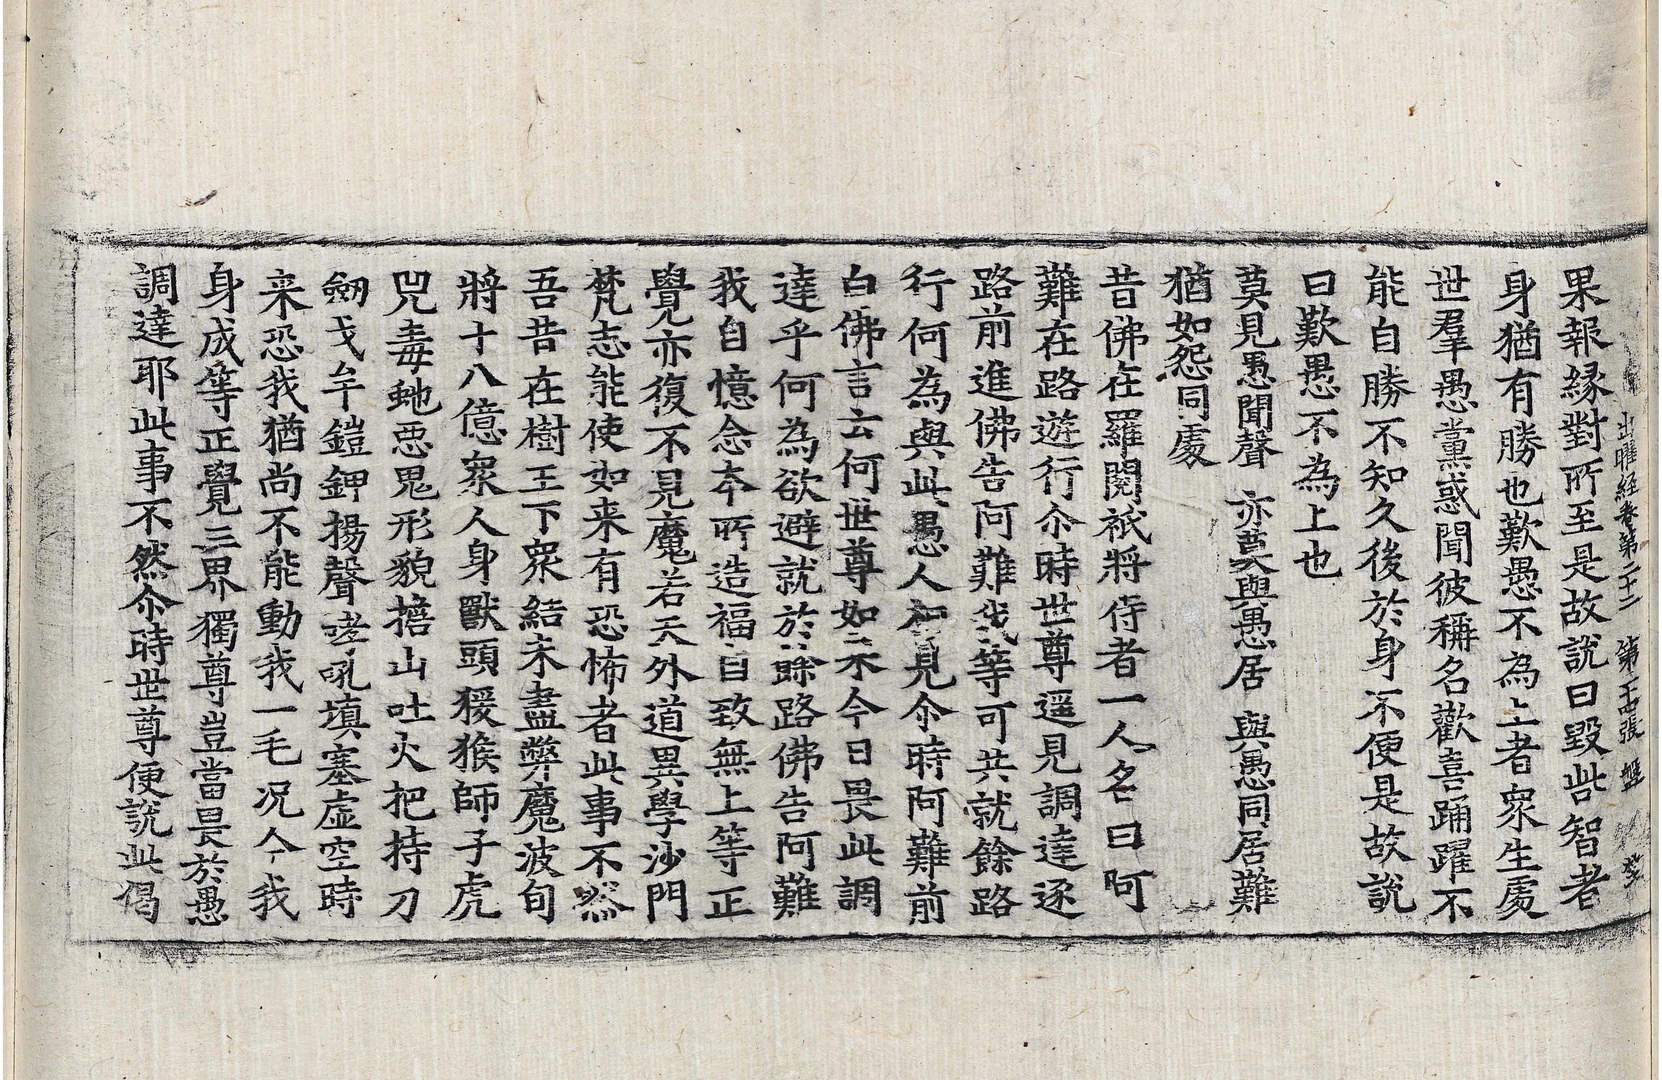 出曜經卷第二十二 第十四張 盤
果報緣對所至是故說曰毀呰智者
身猶有勝也歎愚不為上者眾生處
世羣愚黨惑聞彼稱名歡喜踊躍不
能自勝不知久後於身不便是故說
曰歎愚不為上也
莫見愚聞聲 亦莫與愚居 與愚同居難
猶如怨同處
昔佛在羅閱祇將侍者一人名曰阿
難在路遊行尒時世尊遥見調達逐
路前進佛告阿難我等可共就餘路
行何為與此愚人相見尒時阿難前
白佛言云何世尊如来今日畏此調
達乎何為欲避就於餘路佛告阿難
我自憶念本所造福自致無上等正
覺亦復不見魔若天外道異學沙門
梵志能使如来有恐怖者此事不然
吾昔在樹王下眾結未盡弊魔波旬
將十八億眾人身獸頭猨猴師子虎
兕毒虵惡鬼形貌擔山吐火把持刀
劒戈牟鎧鉀揚聲哮吼填塞虛空時
来恐我猶尚不能動我一毛况今我
身成等正覺三界獨尊豈當畏於愚
調達耶此事不然尒時世尊便說此偈